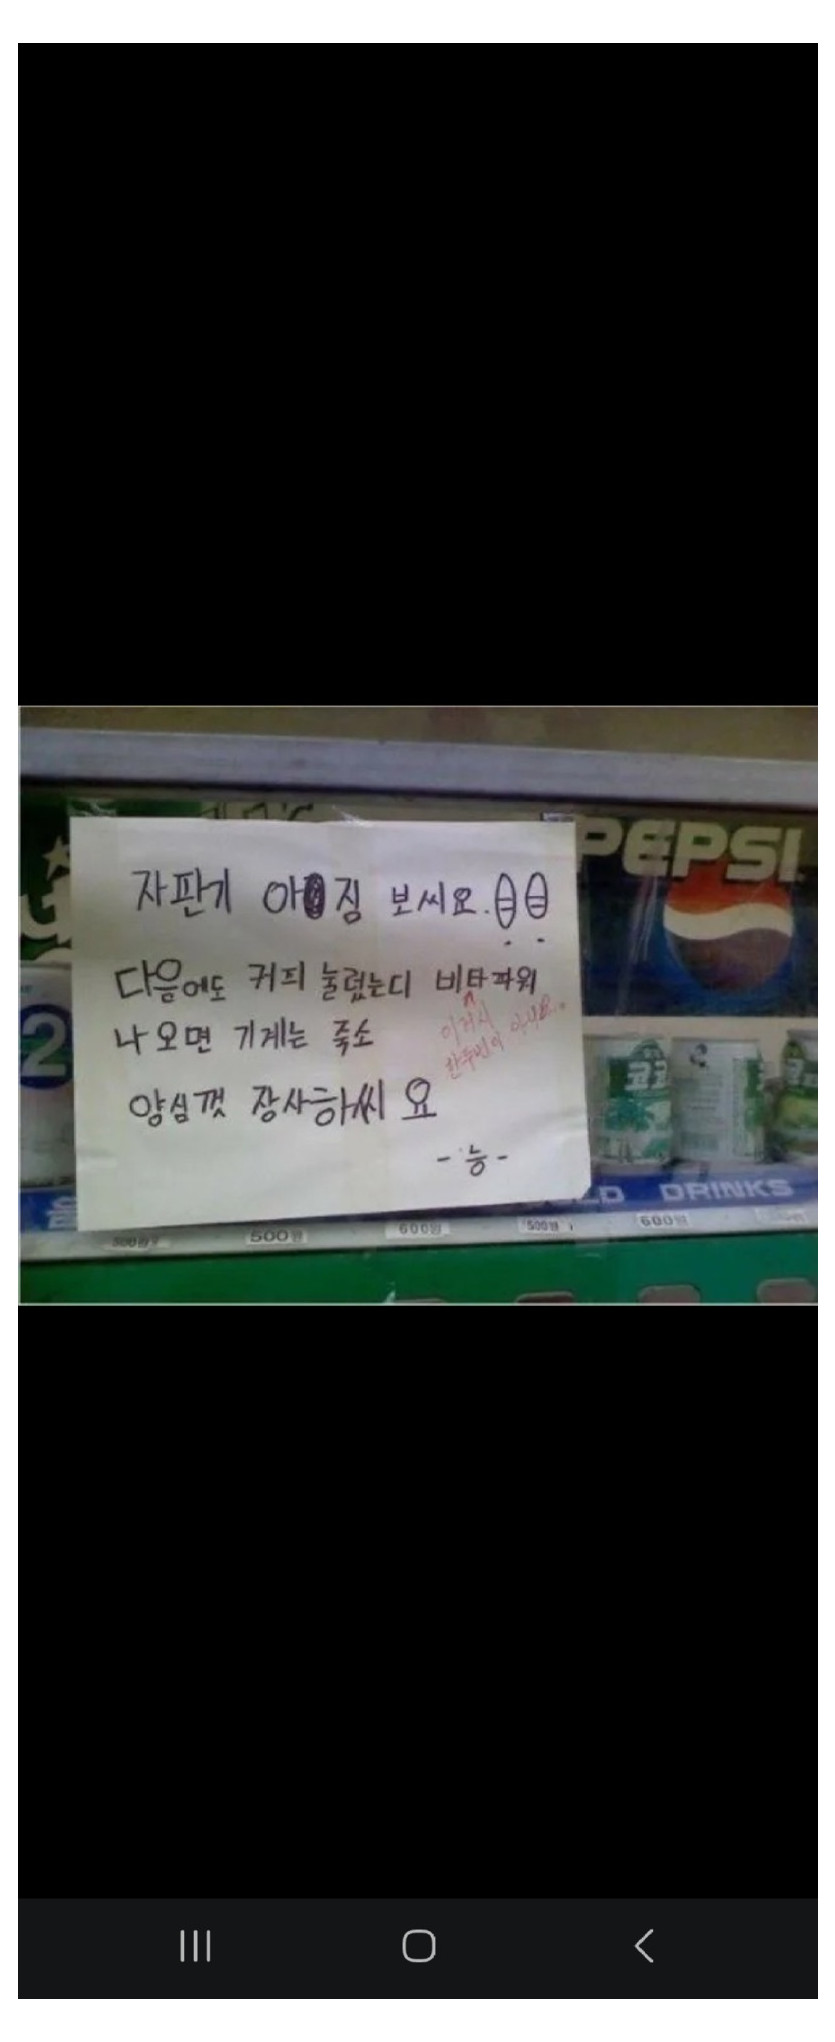 자판기 아짐 보씨요.!!
다음에도 커피 눌렀는디 비타파워
나오면 기계는 죽소
이거시
한두번이 아니요.
양심껏 장사하씨요
-능-
PEPSI
2
코코
DRINKS
500원
600원
500원
600원